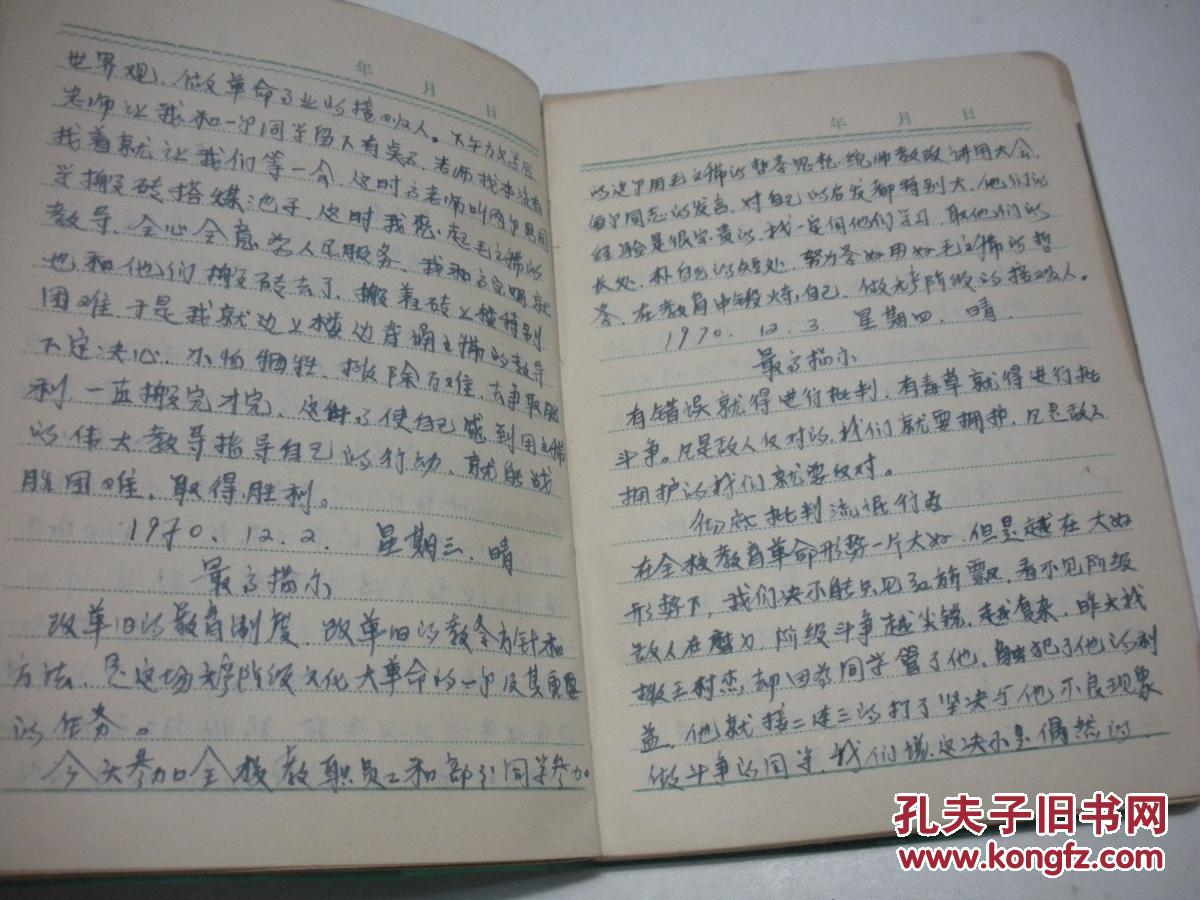 年 月 日
世界观,做革命事业的接班人。下午力文老后
老师让我和一个同学留下有点事,老师找本没有
找着就让我们等一会,这时高老师叫两个男同
学搬砖搭煤池子,这时我想起毛主席的
教导,全心全意为人民服务,我和高宝娟就
也和他们搬砖去了,搬着砖上楼特别
困难,于是我就边上楼边背诵主席的教导
下定决心,不怕牺牲,排除万难,去争取胜
利,一直搬完才完,这时了使自己感到用主席
的伟大教导指导自己的行动,就能战
胜困难,取得胜利。
1970.12.2. 星期三.晴
最高指示
改革旧的教育制度,改革旧的教学方针和
方法,是这场无产阶级文化大革命的一个及其重要
的任务。
今天参加全校教职员工和部分同学参加
年 月 日
的活学用毛主席的哲学思想,统帅教改讲用大会,
每个同志的发言,对自己的启发都特别大,他们的
经验是很宝贵的,我一定向他们学习,取他们的
长处,补自己的短处,努力学好用好毛主席的哲
学,在教育中锻炼自己,做无产阶级的接班人。
1970.12.3 星期四.晴.
最高指示
有错误就得进行批判,有毒草就得进行批
斗争。凡是敌人反对的,我们就要拥护,凡是敌人
拥护的我们就要反对。
彻底批判流氓行为
在全校教育革命形势一片大好,但是越在大好
形势下,我们决不能只见红旗飘,看不见阶级
敌人在磨刀,阶级斗争越尖锐,越复杂,昨天我
排王树杰,却因为同学管了他,触犯了他的利
益,他就接二连三的打了坚决与他不良现象
做斗争的同学,我们说这决不是偶然的,
孔夫子旧书网
www.kongfz.com